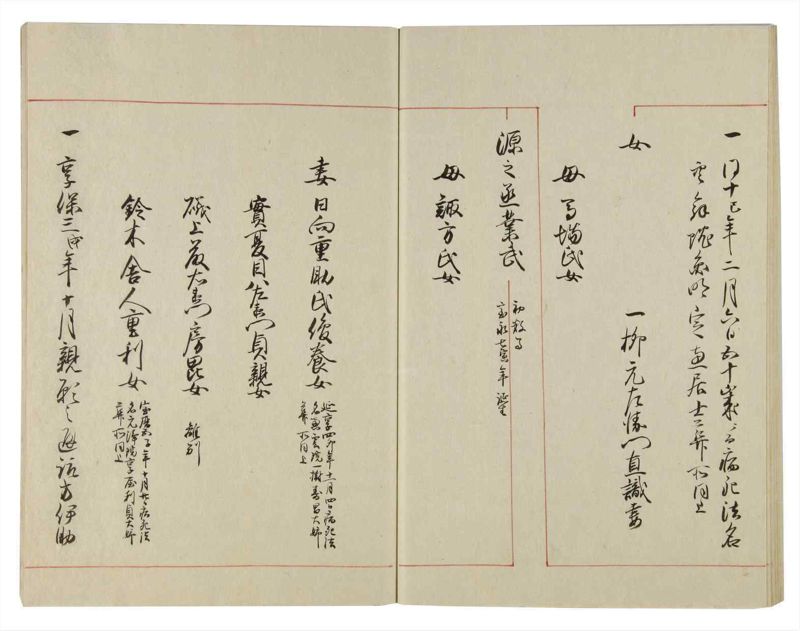 一同十巳年二月六日五十歳ニ而病死法名
定恵居士葬所同上
女
一柳元左衛門直識妻
母馬場氏女
源之丞業武
宝永七寅年誕生
母諏方氏女
妻日向重助氏俊養女
延享四卯年十二月四日病死法
名 雲院一 寿昌大姉
葬所同上
實夏目八左衛門貞親女
磯上 右衛門房 女 離別
鈴木舎人重利女
宝暦 子年十月 病死法
名元 院享 利貞大姉
葬所同上
一享保三戌年十月親 之 諏方伊助